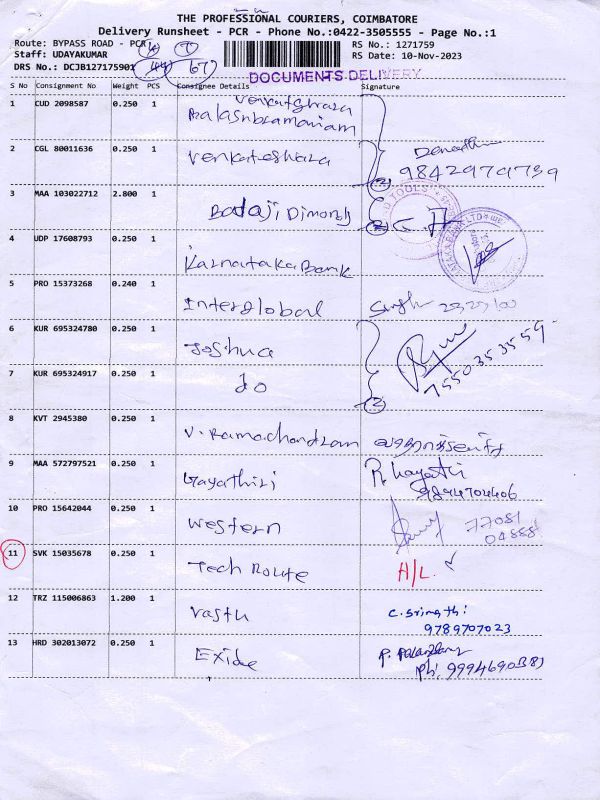 THE PROFESSIONAL COURIERS, COIMBATORE
Delivery Runsheet - PCR - Phone No.:0422-3505555 - Page No.:1
Route: BYPASS ROAD - PCR
RS No.: 1271759
Staff: UDAYAKUMAR
RS Date: 10-Nov-2023
DRS No.: DCJB127175901 44 67
DOCUMENTS DELIVERY
S No Consignment No Weight PCS Consignee Details Signature
1 CUD 2098587 0.250 1 Venkateshwara
Balasubramaniam
2 CGL 80011636 0.250 1 Venkateshara
9842979739
3 MAA 103022712 2.800 1 Balaji Dimonds
4 UDP 17608793 0.250 1 Karnataka Bank
5 PRO 15373268 0.240 1 Interglobal Singh
6 KUR 695324780 0.250 1 Joshua
7 KUR 695324917 0.250 1 do
7550353559
8 KVT 2945380 0.250 1 V. Ramachandran
9 MAA 572797521 0.250 1 Gayathiri R. Gayatri
9894704406
10 PRO 15642044 0.250 1 Western 77081
04888
11 SVK 15035678 0.250 1 Tech Route H/L.
12 TRZ 115006863 1.200 1 Vastu C. Srimathi
9789707023
13 HRD 302013072 0.250 1 Exide
Ph: 9994690383